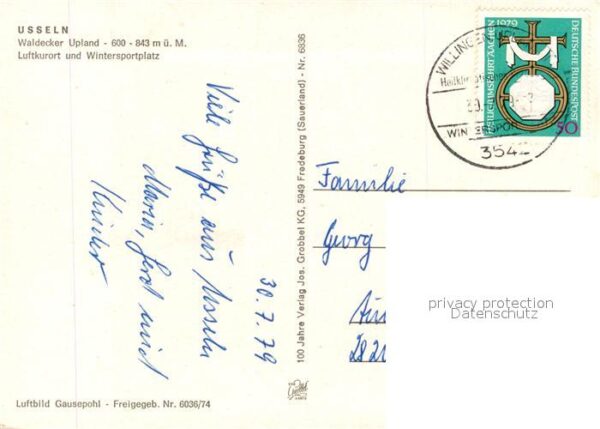 USSELN
Waldecker Upland - 600 - 843 m ü. M.
Luftkurort und Wintersportplatz
Viele Grüße aus Usseln
Maria, und
Kinder
30.7.79
100 Jahre Verlag Jos. Grobbel KG, 5949 Fredeburg (Sauerland) - Nr. 6836
WILLINGEN
WINTERSPORT
3542
1979
DEUTSCHE BUNDESPOST
HEILIGTUMSFAHRT AACHEN
50
Familie
Georg
282
privacy protection
Datenschutz
Luftbild Gausepohl - Freigegeb. Nr. 6036/74